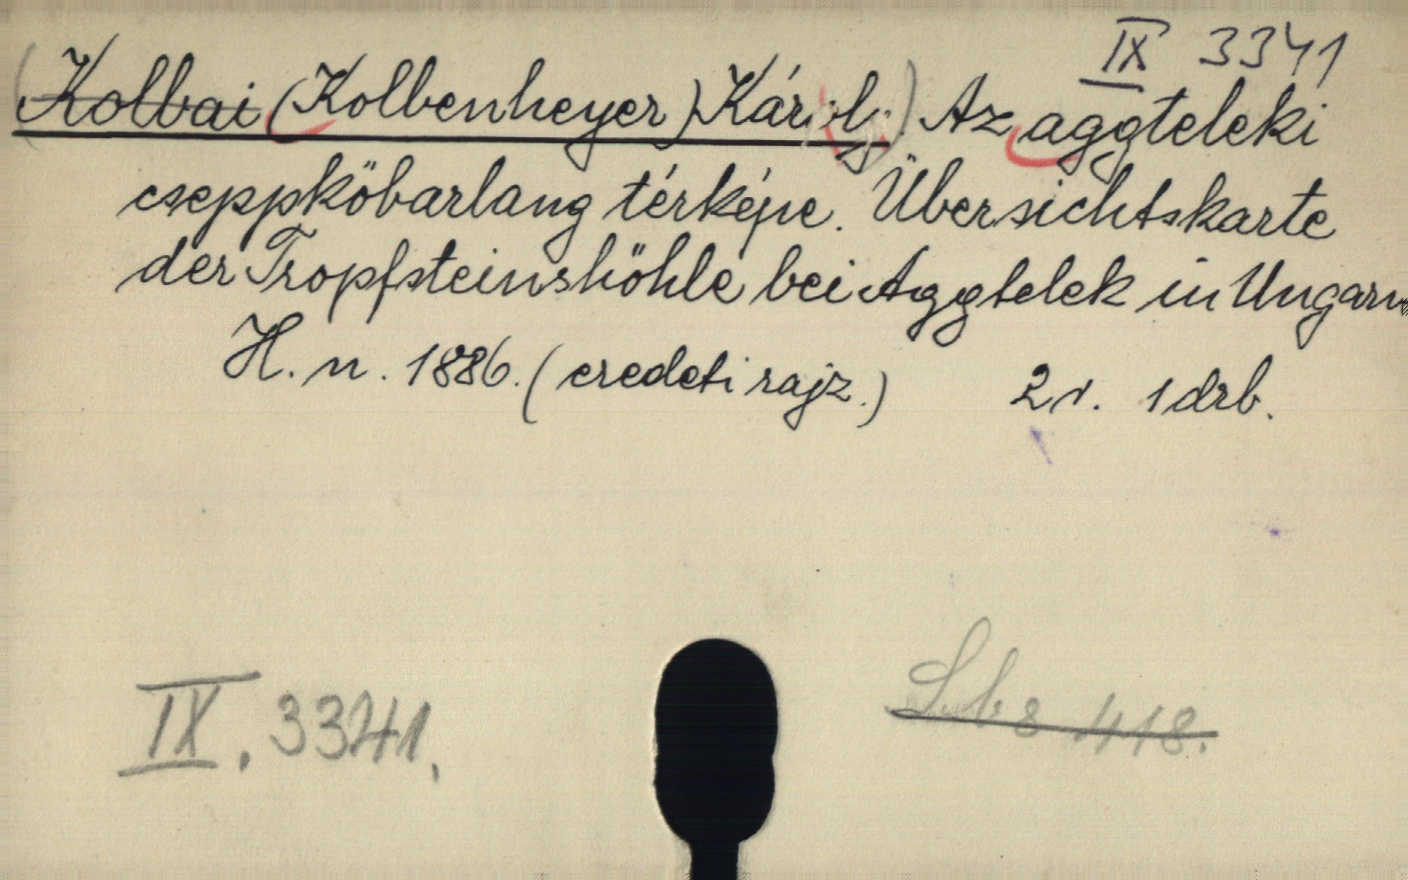 IX 3341
(Kolbai (Kolbenheyer) Károly.) Az aggteleki
cseppkőbarlang térképe. Übersichtskarte
der Tropfsteinshöhle bei Aggtelek in Ungarn
H. n. 1886. (eredeti rajz.) 2 r. 1 drb.
IX. 3341.
418.